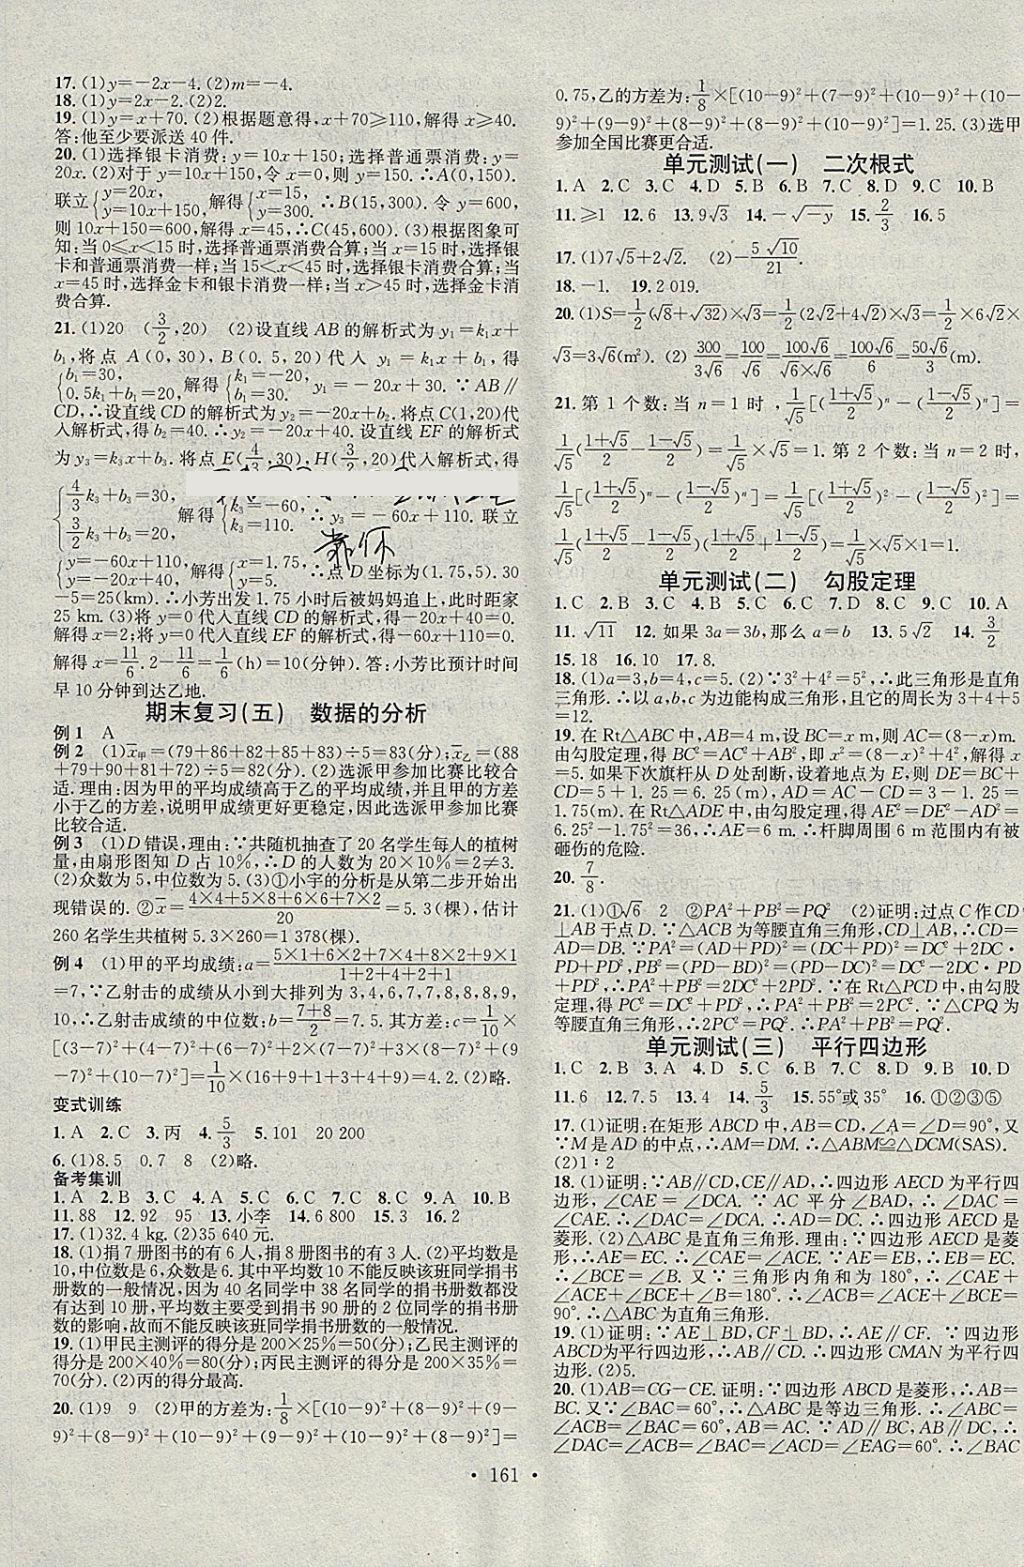 17. (1)y=-2x-4. (2)m=-4.
18. (1)y=2x-2. (2)2.
19. (1)y=x+70. (2)根据题意得,x+70≥110,解得 x≥40.
答:他至少要派送 40 件.
20. (1)选择银卡消费:y=10x+150;选择普通票消费:y=
20x. (2)对于 y=10x+150,令 x=0,则 y=150. ∴A(0,150).
联立{y=20x, y=10x+150, 解得{x=15, y=300. ∴B(15,300). 令 y=600,
则 10x+150=600,解得 x=45,∴C(45,600). (3)根据图象可
知:当 0≤x<15 时,选择普通票消费合算;当 x=15 时,选择银
卡和普通票消费一样;当 15<x<45 时,选择银卡消费合算;当
x=45 时,选择金卡和银卡消费一样;当 x>45 时,选择金卡消
费合算.
21. (1)20 (3/2,20) (2)设直线 AB 的解析式为 y₁=k₁x+
b₁,将点 A(0,30),B(0.5,20)代入 y₁=k₁x+b₁,得
{b₁=30, 0.5k₁+b₁=20, 解得{k₁=-20, b₁=30. y₁=-20x+30. ∵AB∥
CD,∴设直线 CD 的解析式为 y₂=-20x+b₂,将点 C(1,20)代
入解析式,得 b₂=40. ∴y₂=-20x+40. 设直线 EF 的解析式
为 y₃=k₃x+b₃. 将点 E(4/3,30),H(3/2,20)代入解析式,得
{4/3k₃+b₃=30, 3/2k₃+b₃=20, 解得{k₃=-60, b₃=110. ∴y₃=-60x+110. 联立
{y=-60x+110, y=-20x+40, 解得{x=1.75, y=5. ∴点 D 坐标为(1.75,5). 30
-5=25(km). ∴小芳出发 1.75 小时后被妈妈追上,此时距家
25 km. (3)将 y=0 代入直线 CD 的解析式,得-20x+40=0.
解得 x=2;将 y=0 代入直线 EF 的解析式,得-60x+110=0.
解得 x=11/6. 2-11/6=1/6(h)=10(分钟). 答:小芳比预计时间
早 10 分钟到达乙地.
期末复习(五) 数据的分析
例 1 A
例 2 (1)x̄甲=(79+86+82+85+83)÷5=83(分);x̄乙=(88
+79+90+81+72)÷5=82(分). (2)选派甲参加比赛比较合
适. 理由:因为甲的平均成绩高于乙的平均成绩,并且甲的方差
小于乙的方差,说明甲成绩更好更稳定,因此选派甲参加比赛
比较合适.
例 3 (1)D 错误,理由:∵共随机抽查了 20 名学生每人的植树
量,由扇形图知 D 占 10%,∴D 的人数为 20×10%=2≠3.
(2)众数为 5,中位数为 5. (3)①小宇的分析是从第二步开始出
现错误的. ②x̄=(4×4+5×8+6×6+7×2)/20=5.3(棵),估计
260 名学生共植树 5.3×260=1 378(棵).
例 4 (1)甲的平均成绩:a=(5×1+6×2+7×4+8×2+9×1)/(1+2+4+2+1)
=7,∵乙射击的成绩从小到大排列为 3,4,6,7,7,8,8,8,9,
10,∴乙射击成绩的中位数:b=(7+8)/2=7.5. 其方差:c=1/10×
[(3-7)²+(4-7)²+(6-7)²+2×(7-7)²+3×(8-7)²+(9
-7)²+(10-7)²]=1/10×(16+9+1+3+4+9)=4.2. (2)略.
变式训练
1. A 2. C 3. 丙 4. 5/3 5. 101 20 200
6. (1)8.5 0.7 8 (2)略.
备考集训
1. A 2. B 3. C 4. A 5. C 6. B 7. C 8. C 9. A 10. B
11. 88 12. 92 95 13. 小李 14. 6 800 15. 3 16. 2
17. (1)32.4 kg. (2)35 640 元.
18. (1)捐 7 册图书的有 6 人,捐 8 册图书的有 3 人. (2)平均数是
10,中位数是 6,众数是 6. 其中平均数 10 不能反映该班同学捐书
册数的一般情况. 因为 40 名同学中 38 名同学的捐书册数都没
有达到 10 册,平均数主要受到捐书 90 册的 2 位同学的捐书册
数的影响,故而不能反映该班同学捐书册数的一般情况.
19. (1)甲民主测评的得分是 200×25%=50(分);乙民主测评的
得分是 200×40%=80(分);丙民主测评的得分是 200×35%=
70(分). (2)丙的得分最高.
20. (1)9 9 (2)甲的方差为:1/8×[(10-9)²+(8-9)²+(9-
9)²+(8-9)²+(8-9)²+(10-9)²+(10-9)²+(8-9)²]=
0.75,乙的方差为:1/8×[(10-9)²+(7-9)²+(10-9)²+(10-
9)²+(9-9)²+(8-9)²+(8-9)²+(10-9)²]=1.25. (3)选甲
参加全国比赛更合适.
单元测试(一) 二次根式
1. A 2. C 3. C 4. D 5. B 6. B 7. C 8. D 9. C 10. B
11. ≥1 12. 6 13. 9√3 14. -√-y 15. 2/3 16. 5
17. (1)7√5+2√2. (2)-5√10/21.
18. -1. 19. 2 019.
20. (1)S=1/2(√8+√32)×√3=1/2(2√2+4√2)×√3=1/2×6√2×
√3=3√6(m²). (2) 300/3√6=100/√6=100√6/√6×√6=100√6/6=50√6/3(m).
21. 第 1 个数:当 n=1 时,1/√5[((1+√5)/2)ⁿ-((1-√5)/2)ⁿ]=
1/√5((1+√5)/2-(1-√5)/2)=1/√5×√5=1. 第 2 个数:当 n=2 时,
1/√5[((1+√5)/2)ⁿ-((1-√5)/2)ⁿ]=1/√5[((1+√5)/2)²-((1-√5)/2)²]=
1/√5((1+√5)/2+(1-√5)/2)((1+√5)/2-(1-√5)/2)=1/√5×1×√5=1.
单元测试(二) 勾股定理
1. C 2. B 3. C 4. C 5. B 6. C 7. D 8. C 9. C 10. A
11. √11 12. 如果 3a=3b,那么 a=b 13. 5√2 14. 3/2
15. 18 16. 10 17. 8.
18. (1)a=3,b=4,c=5. (2)∵3²+4²=5²,∴此三角形是直角
三角形. ∴以 a,b,c 为边能构成三角形,且它的周长为 3+4+5
=12.
19. 在 Rt△ABC 中,AB=4 m,设 BC=x m,则 AC=(8-x)m.
由勾股定理,得 BC²=AC²+AB²,即 x²=(8-x)²+4²,解得 x
=5. 如果下次旗杆从 D 处刮断,设着地点为 E,则 DE=BC+
CD=5+1.25=6.25(m),AD=AC-CD=3-1.25=
1.75(m). 在 Rt△ADE 中,由勾股定理,得 AE²=DE²-AD²=
6.25²-1.75²=36,∴AE=6(m). ∴杆脚周围 6 m 范围内有被
砸伤的危险.
20. 7/8.
21. (1)①√6 2 ②PA²+PB²=PQ² (2)证明:过点 C 作CD
⊥AB 于点 D. ∵△ABC 为等腰直角三角形,CD⊥AB,∴CD=
AD=DB. ∵PA²=(AD+PD)²=(DC+PD)²=DC²+2DC·
PD+PD²,PB²=(PD-BD)²=(PD-DC)²=DC²-2DC·PD
+PD²,∴PA²+PB²=2DC²+2PD². ∵在 Rt△PCD 中,由勾股
定理,得 PC²=DC²+PD²,∴PA²+PB²=2PC². ∵△CPQ 为
等腰直角三角形,∴2PC²=PQ². ∴PA²+PB²=PQ².
单元测试(三) 平行四边形
1. C 2. B 3. D 4. A 5. C 6. B 7. C 8. D 9. B 10. D
11. 6 12. 7.5 13. 4 14. 5/3 15. 55°或 35° 16. ①②③⑤
17. (1)证明:在矩形 ABCD 中,AB=CD,∠A=∠D=90°,又
∵M 是 AD 的中点,∴AM=DM. ∴△ABM≌△DCM(SAS).
(2)1∶2
18. (1)证明:∵AB∥CD,CE∥AD,∴四边形 AECD 为平行四
边形,∠CAE=∠DCA. ∵AC 平分∠BAD,∴∠DAC=
∠CAE. ∴∠DAC=∠DCA. ∴AD=DC. ∴四边形 AECD 是
菱形. (2)△ABC 是直角三角形. 理由:∵四边形 AECD 是菱
形,∴AE=EC. ∴∠CAE=∠ACE. ∵AE=EB,∴EB=EC.
∴∠BCE=∠B. 又∵三角形内角和为 180°,∴∠CAE+
∠ACE+∠BCE+∠B=180°. ∴∠ACB=∠ACE+∠BCE=
90°. ∴△ABC 为直角三角形.
19. (1)证明:∵AE⊥BD,CF⊥BD,∴AE∥CF. ∵四边形
ABCD为平行四边形,∴AB∥CD. ∴四边形 CMAN 为平行四
边形. (2)5.
20. (1)AB=CG-CE. 证明:∵四边形 ABCD 是菱形,∴AB=
BC. 又∵∠ABC=60°,∴△ABC 是等边三角形. ∴∠ABC=
∠ACB=∠BAC=60°,AB=AC. ∵AD∥BC,AB∥DC,∴
∠DAC=∠ACB=60°,∠ACD=∠EAG=60°. ∴∠BAC
· 161 ·